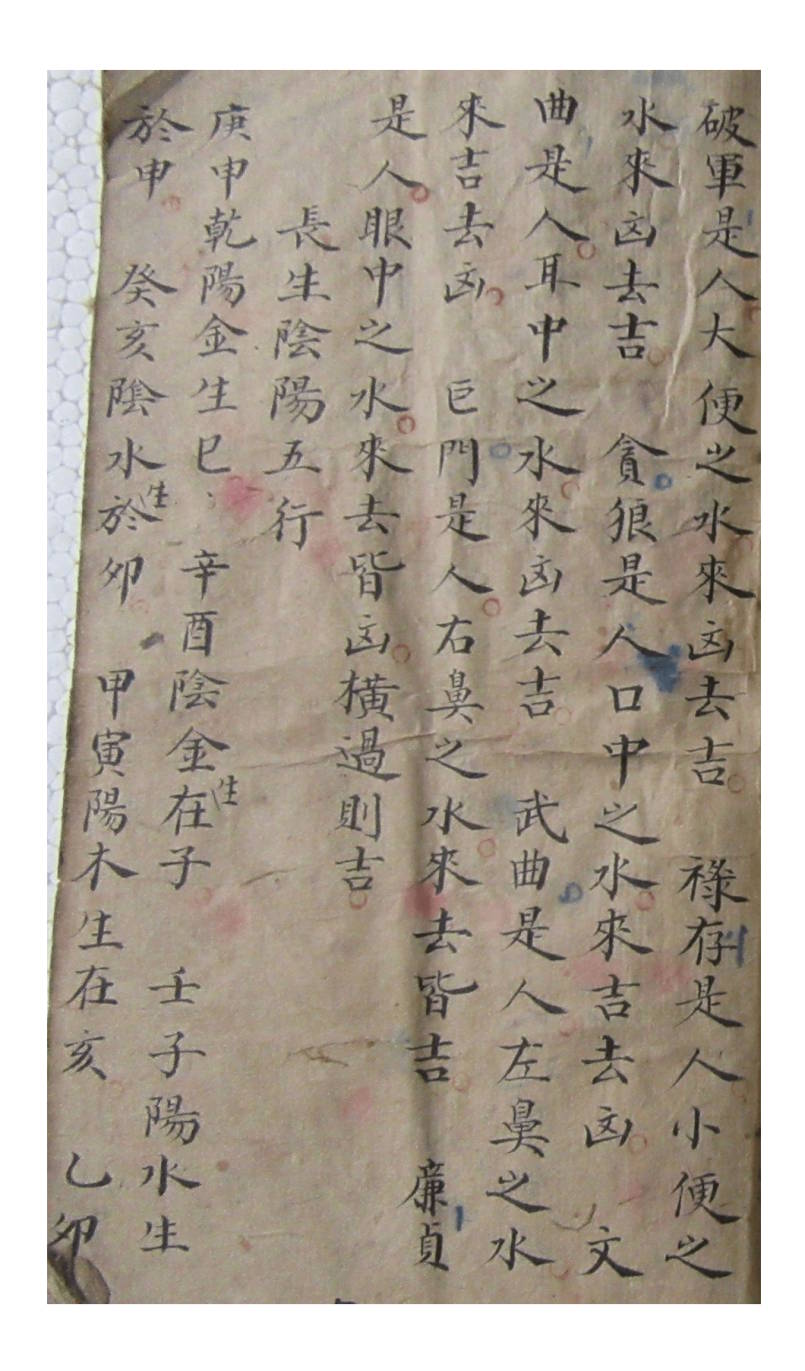 破軍是人大便之水來凶去吉 祿存是人小便之
水來凶去吉 貪狼是人口中之水來吉去凶 文
曲是人耳中之水來凶去吉 武曲是人左鼻之水
來吉去凶 巨門是人右鼻之水來去皆吉 廉貞
是人眼中之水來去皆凶橫過則吉
長生陰陽五行
庚申乾陽金生巳 辛酉陰金生在子 壬子陽水生
於申 癸亥陰水生於卯 甲寅陽木生在亥 乙卯